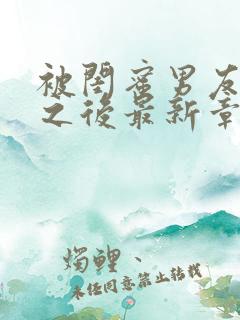 被閨蜜男友
之後最新章
燭鯉、
未经同意禁止转载